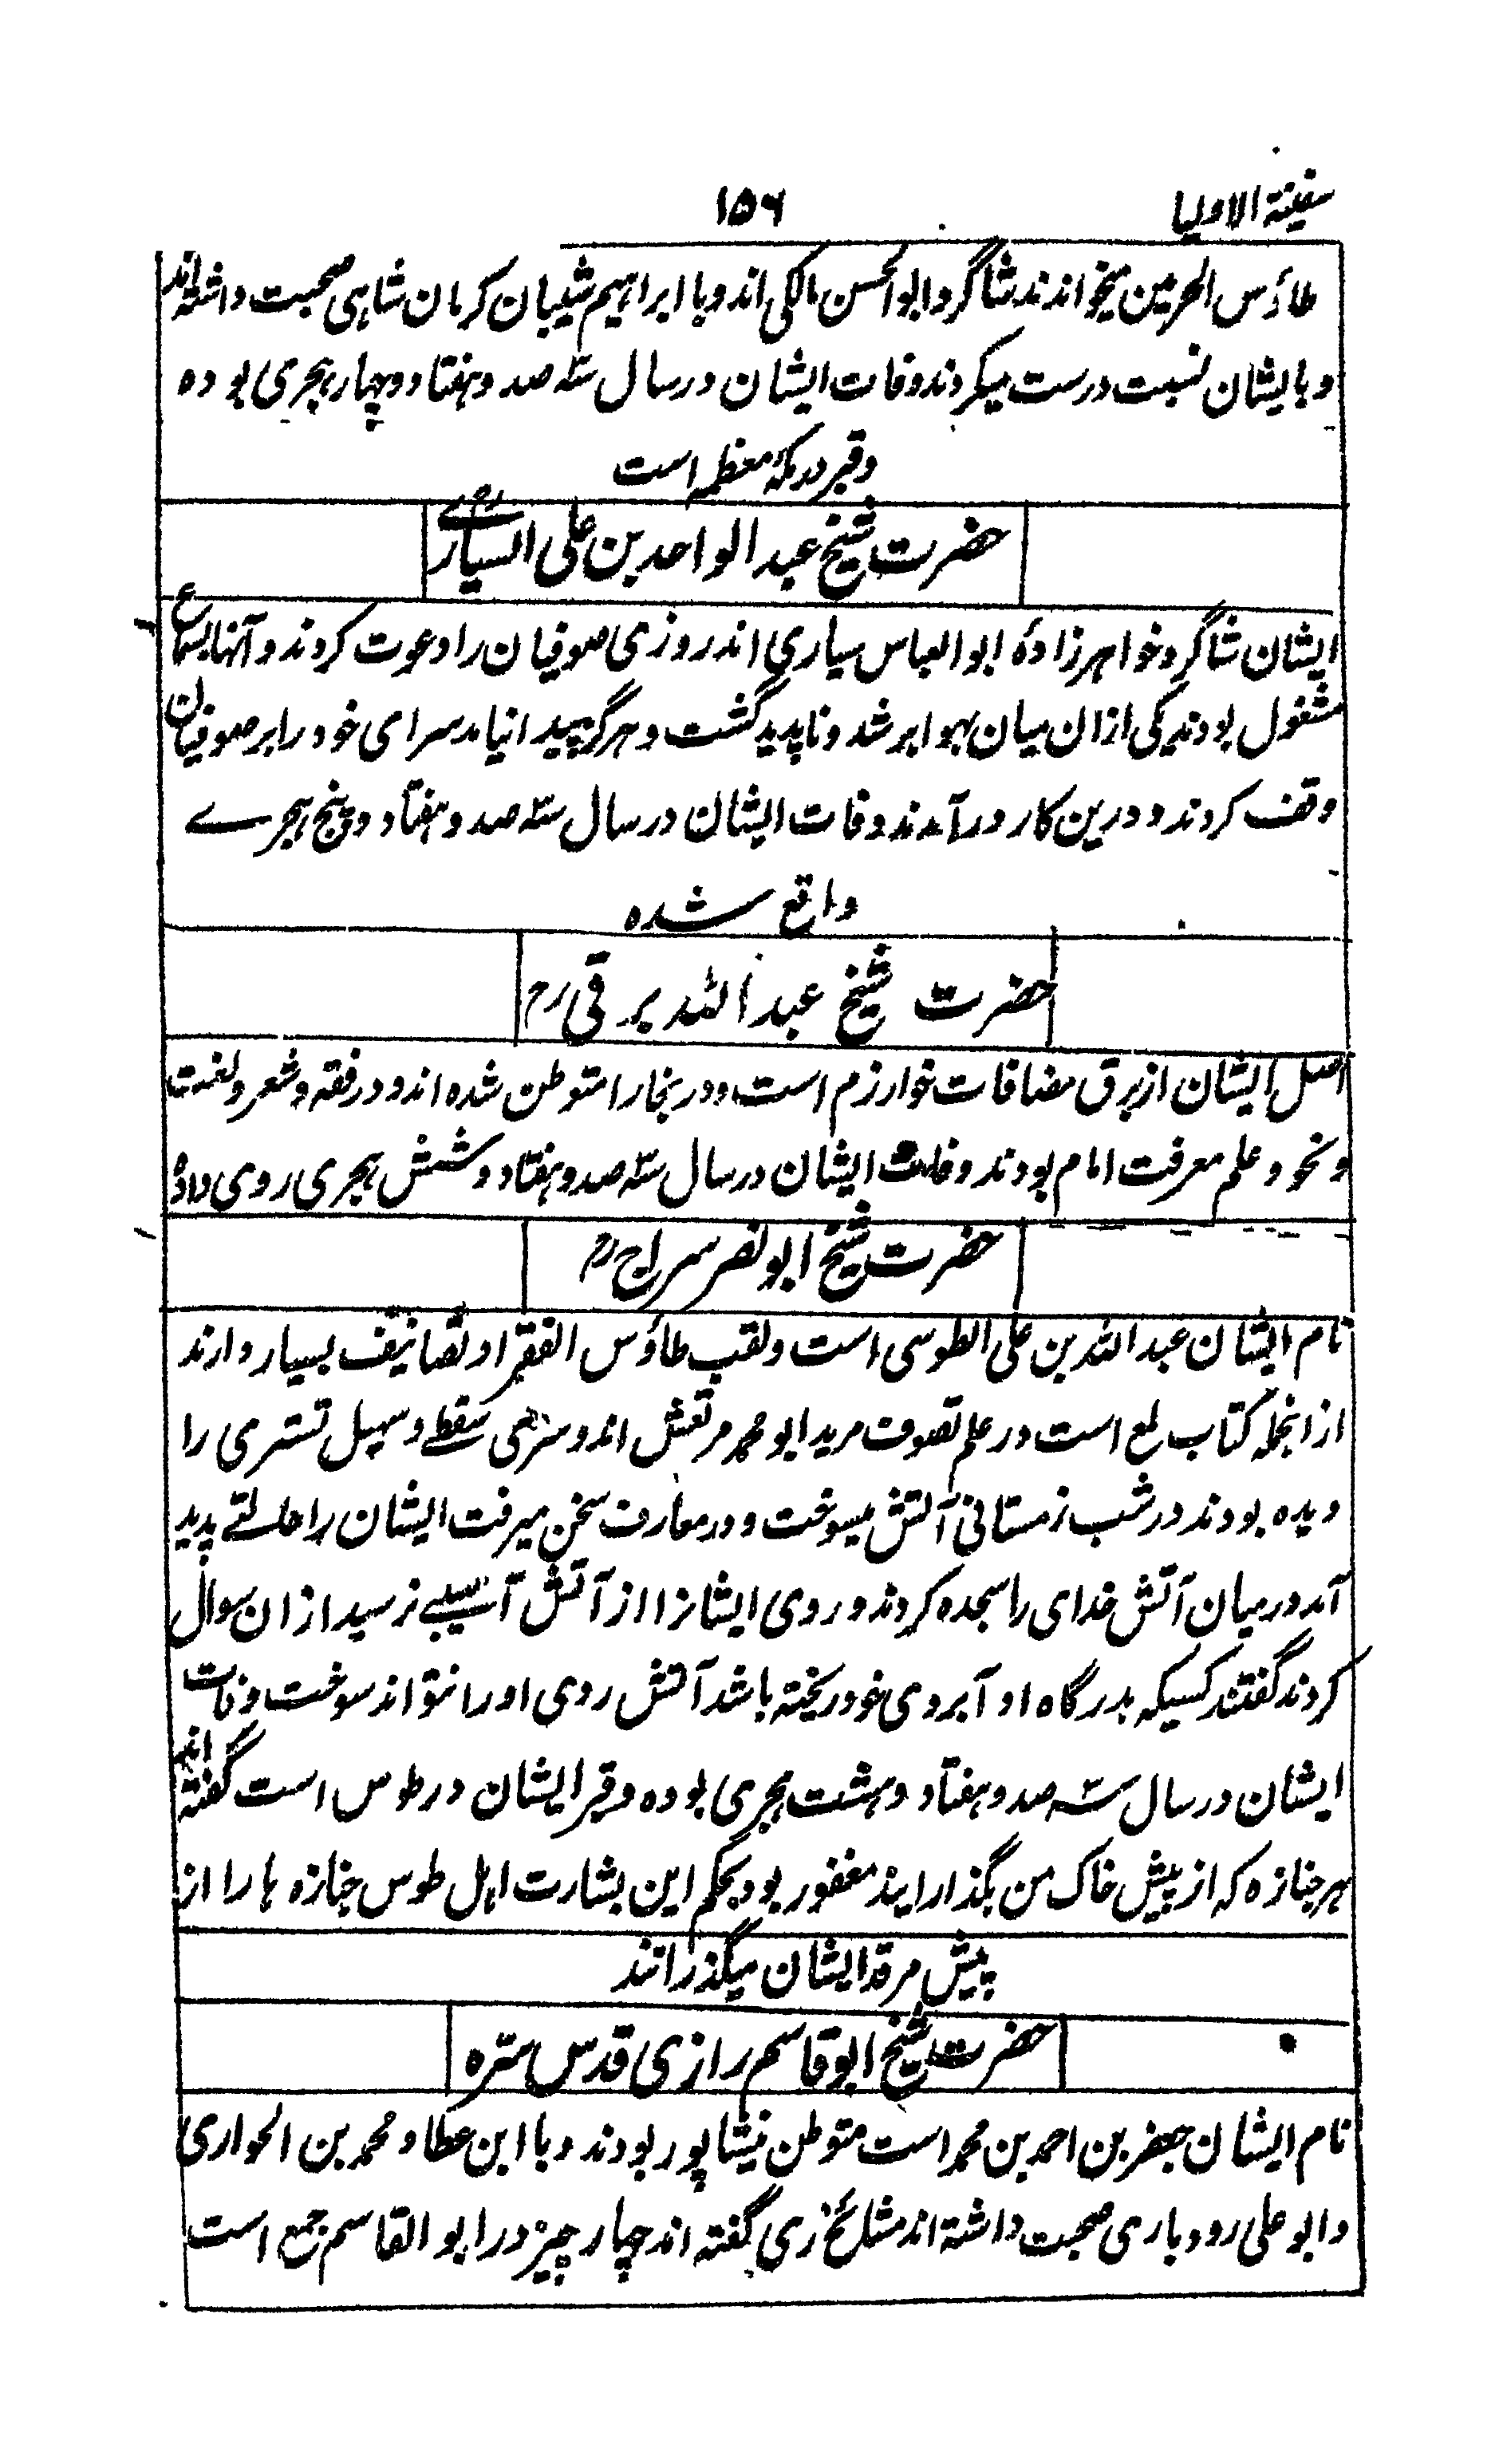 سفینة الاولیا
۱۵۶
طاؤس الحرمین میخوانند شاگرد ابوالحسن مالکی اند و با ابراہیم شیبان کرمان شاہی صحبت داشتہ اند
و بایشان نسبت درست میکردند وفات ایشان در سال سہ صد و ہفتاد و چہار ہجری بودہ
و قبر در مکۂ معظمہ است
حضرت شیخ عبدالواحد بن علی السیاری رح
ایشان شاگرد خواہرزادۂ ابوالعباس سیاری اند روزی صوفیان را دعوت کردند و آنہا بسماع
مشغول بودند یکی ازان میان بہوا بر شد و ناپدید گشت و ہرگز پیدا نیامد سرای خود را بر صوفیان
وقف کردند و درین کار در آمدند وفات ایشان در سال سہ صد و ہفتاد و پنج ہجرے
واقع شدہ
حضرت شیخ عبداللہ برقی رح
اصل ایشان از برق مضافات خوارزم است و در بخارا متوطن شدہ اند و در فقہ و شعر و لغت
و نحو و علم معرفت امام بودند وفات ایشان در سال سہ صد و ہفتاد و شش ہجری روی دادہ
حضرت شیخ ابونصر سراج رح
نام ایشان عبداللہ بن علی الطوسی است و لقب طاؤس الفقرا و تصانیف بسیار دارند
ازانجملہ کتاب لمع است در علم تصوف مرید ابومحمد مرتعش اند و سرّی سقطے و سہیل تستری را
دیدہ بودند در شب زمستانی آتش میسوخت و در معارف سخن میرفت ایشان را حالتے پدید
آمد درمیان آتش خدای را سجدہ کردند و روی ایشانرا از آتش آسیبے نرسید ازان سوال
کردند گفتند کسیکہ بدرگاہ او آبروی خود ریختہ باشد آتش روی او را نتواند سوخت وفات
ایشان در سال سہ صد و ہفتاد و ہشت ہجری بودہ و قبر ایشان در طوس است گفتہ اند
ہر جنازہ کہ از پیش خاک من بگذرانند مغفور بود بحکم این بشارت اہل طوس جنازہ ہا را از
پیش مرقد ایشان میگذرانند
حضرت شیخ ابو قاسم رازی قدس سرّہ
نام ایشان جعفر بن احمد بن محمد است متوطن نیشاپور بودند و با ابن عطا و محمد بن الحواری
و ابو علی رودباری صحبت داشتہ اند مشائخ ری گفتہ اند چہار چیز در ابوالقاسم جمع است